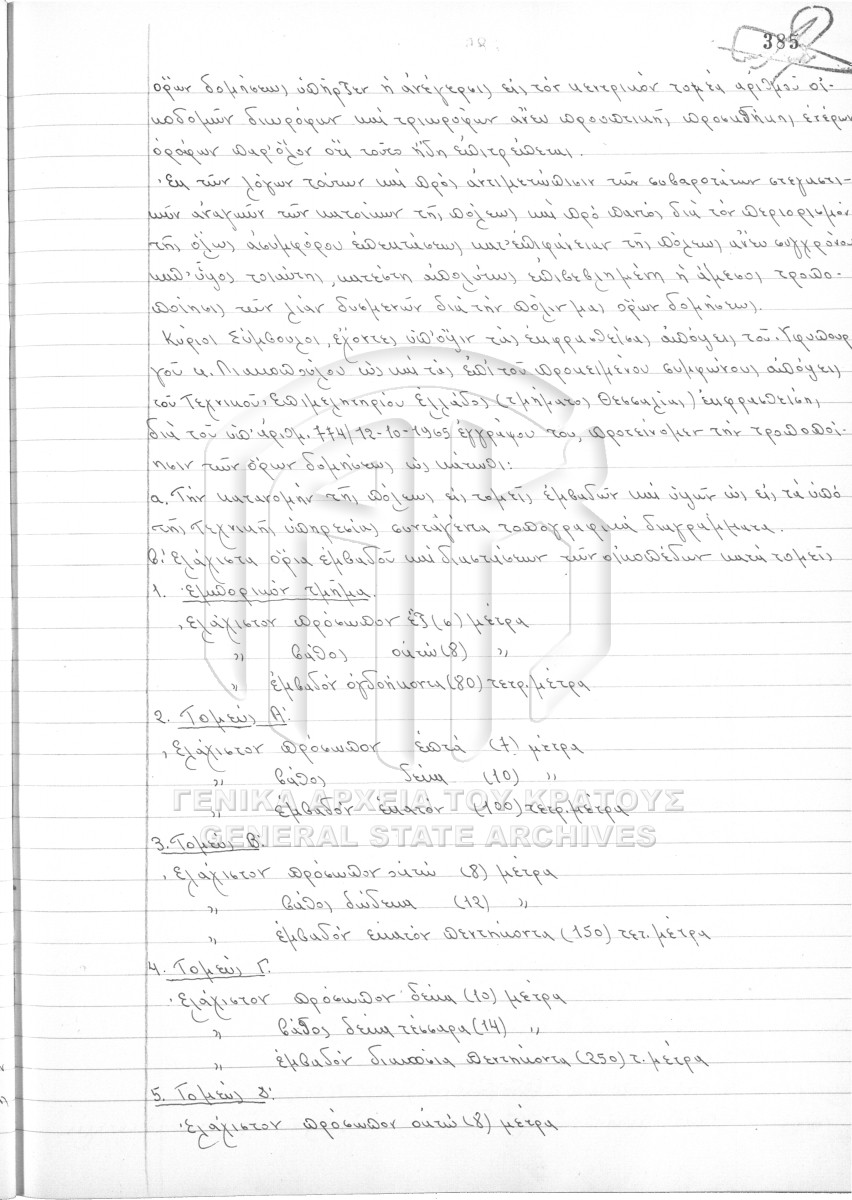 385
ὅρων δομήσεως ὑπῆρξεν ἡ ἀνέγερσις εἰς τὸν κεντρικὸν τομέα ἀριθμοῦ οἰ-
κοδομῶν διωρόφων καὶ τριωρόφων ἄνευ προοπτικῆς προσθήκης ἑτέρων
ὀρόφων παρ' ὅλον ὅτι τοῦτο ἤδη ἐπιτρέπεται.
Ἐκ τῶν λόγων τούτων καὶ πρὸς ἀντιμετώπισιν τῶν σοβαροτάτων στεγαστι-
κῶν ἀναγκῶν τῶν κατοίκων τῆς πόλεως καὶ πρὸ παντὸς διὰ τὸν περιορισμὸν
τῆς ὅλως ἀσυμφόρου ἐπεκτάσεως κατ' ἐπιφάνειαν τῆς πόλεως ἄνευ συγχρόνου
καθ' ὕψος τοιαύτης, κατέστη ἀπολύτως ἐπιβεβλημένη ἡ ἄμεσος τροπο-
ποίησις τῶν λίαν δυσμενῶν διὰ τὴν πόλιν μας ὅρων δομήσεως.
Κύριοι Σύμβουλοι, ἔχοντες ὑπ' ὄψιν τὰς ἐκφρασθείσας ἀπόψεις τοῦ Ὑφυπουρ-
γοῦ κ. Λιακοπούλου ὡς καὶ τὰς ἐπὶ τοῦ προκειμένου συμφώνους ἀπόψεις
τοῦ Τεχνικοῦ Ἐπιμελητηρίου Ἑλλάδος (τμήματος Θεσσαλίας) ἐκφρασθείσης
διὰ τοῦ ὑπ' ἀριθμ. 774/12-10-1965 ἐγγράφου του, προτείνομεν τὴν τροποποί-
ησιν τῶν ὅρων δομήσεως ὡς κάτωθι:
α. Τὴν κατανομὴν τῆς πόλεως εἰς τομεῖς ἐμβαδῶν καὶ ὑψῶν ὡς εἰς τὰ ὑπὸ
τῆς Τεχνικῆς ὑπηρεσίας συνταγέντα τοπογραφικὰ διαγράμματα.
β. Ἐλάχιστα ὅρια ἐμβαδοῦ καὶ διαστάσεων τῶν οἰκοπέδων κατὰ τομεῖς
1. Ἐμπορικὸν τμῆμα.
Ἐλάχιστον πρόσωπον ἕξ (6) μέτρα
〃 βάθος ὀκτώ (8) 〃
〃 ἐμβαδὸν ὀγδοήκοντα (80) τετρ. μέτρα
2. Τομεὺς Α'.
Ἐλάχιστον πρόσωπον ἑπτά (7) μέτρα
〃 βάθος δέκα (10) 〃
〃 ἐμβαδὸν ἑκατόν (100) τετρ. μέτρα
ΓΕΝΙΚΑ ΑΡΧΕΙΑ ΤΟΥ ΚΡΑΤΟΥΣ
GENERAL STATE ARCHIVES
3. Τομεὺς Β'.
Ἐλάχιστον πρόσωπον ὀκτώ (8) μέτρα
〃 βάθος δώδεκα (12) 〃
〃 ἐμβαδὸν ἑκατὸν πεντήκοντα (150) τετ. μέτρα
4. Τομεὺς Γ'.
Ἐλάχιστον πρόσωπον δέκα (10) μέτρα
〃 βάθος δέκα τέσσαρα (14) 〃
〃 ἐμβαδὸν διακόσια πεντήκοντα (250) τ. μέτρα
5. Τομεὺς δ'.
Ἐλάχιστον πρόσωπον ὀκτώ (8) μέτρα